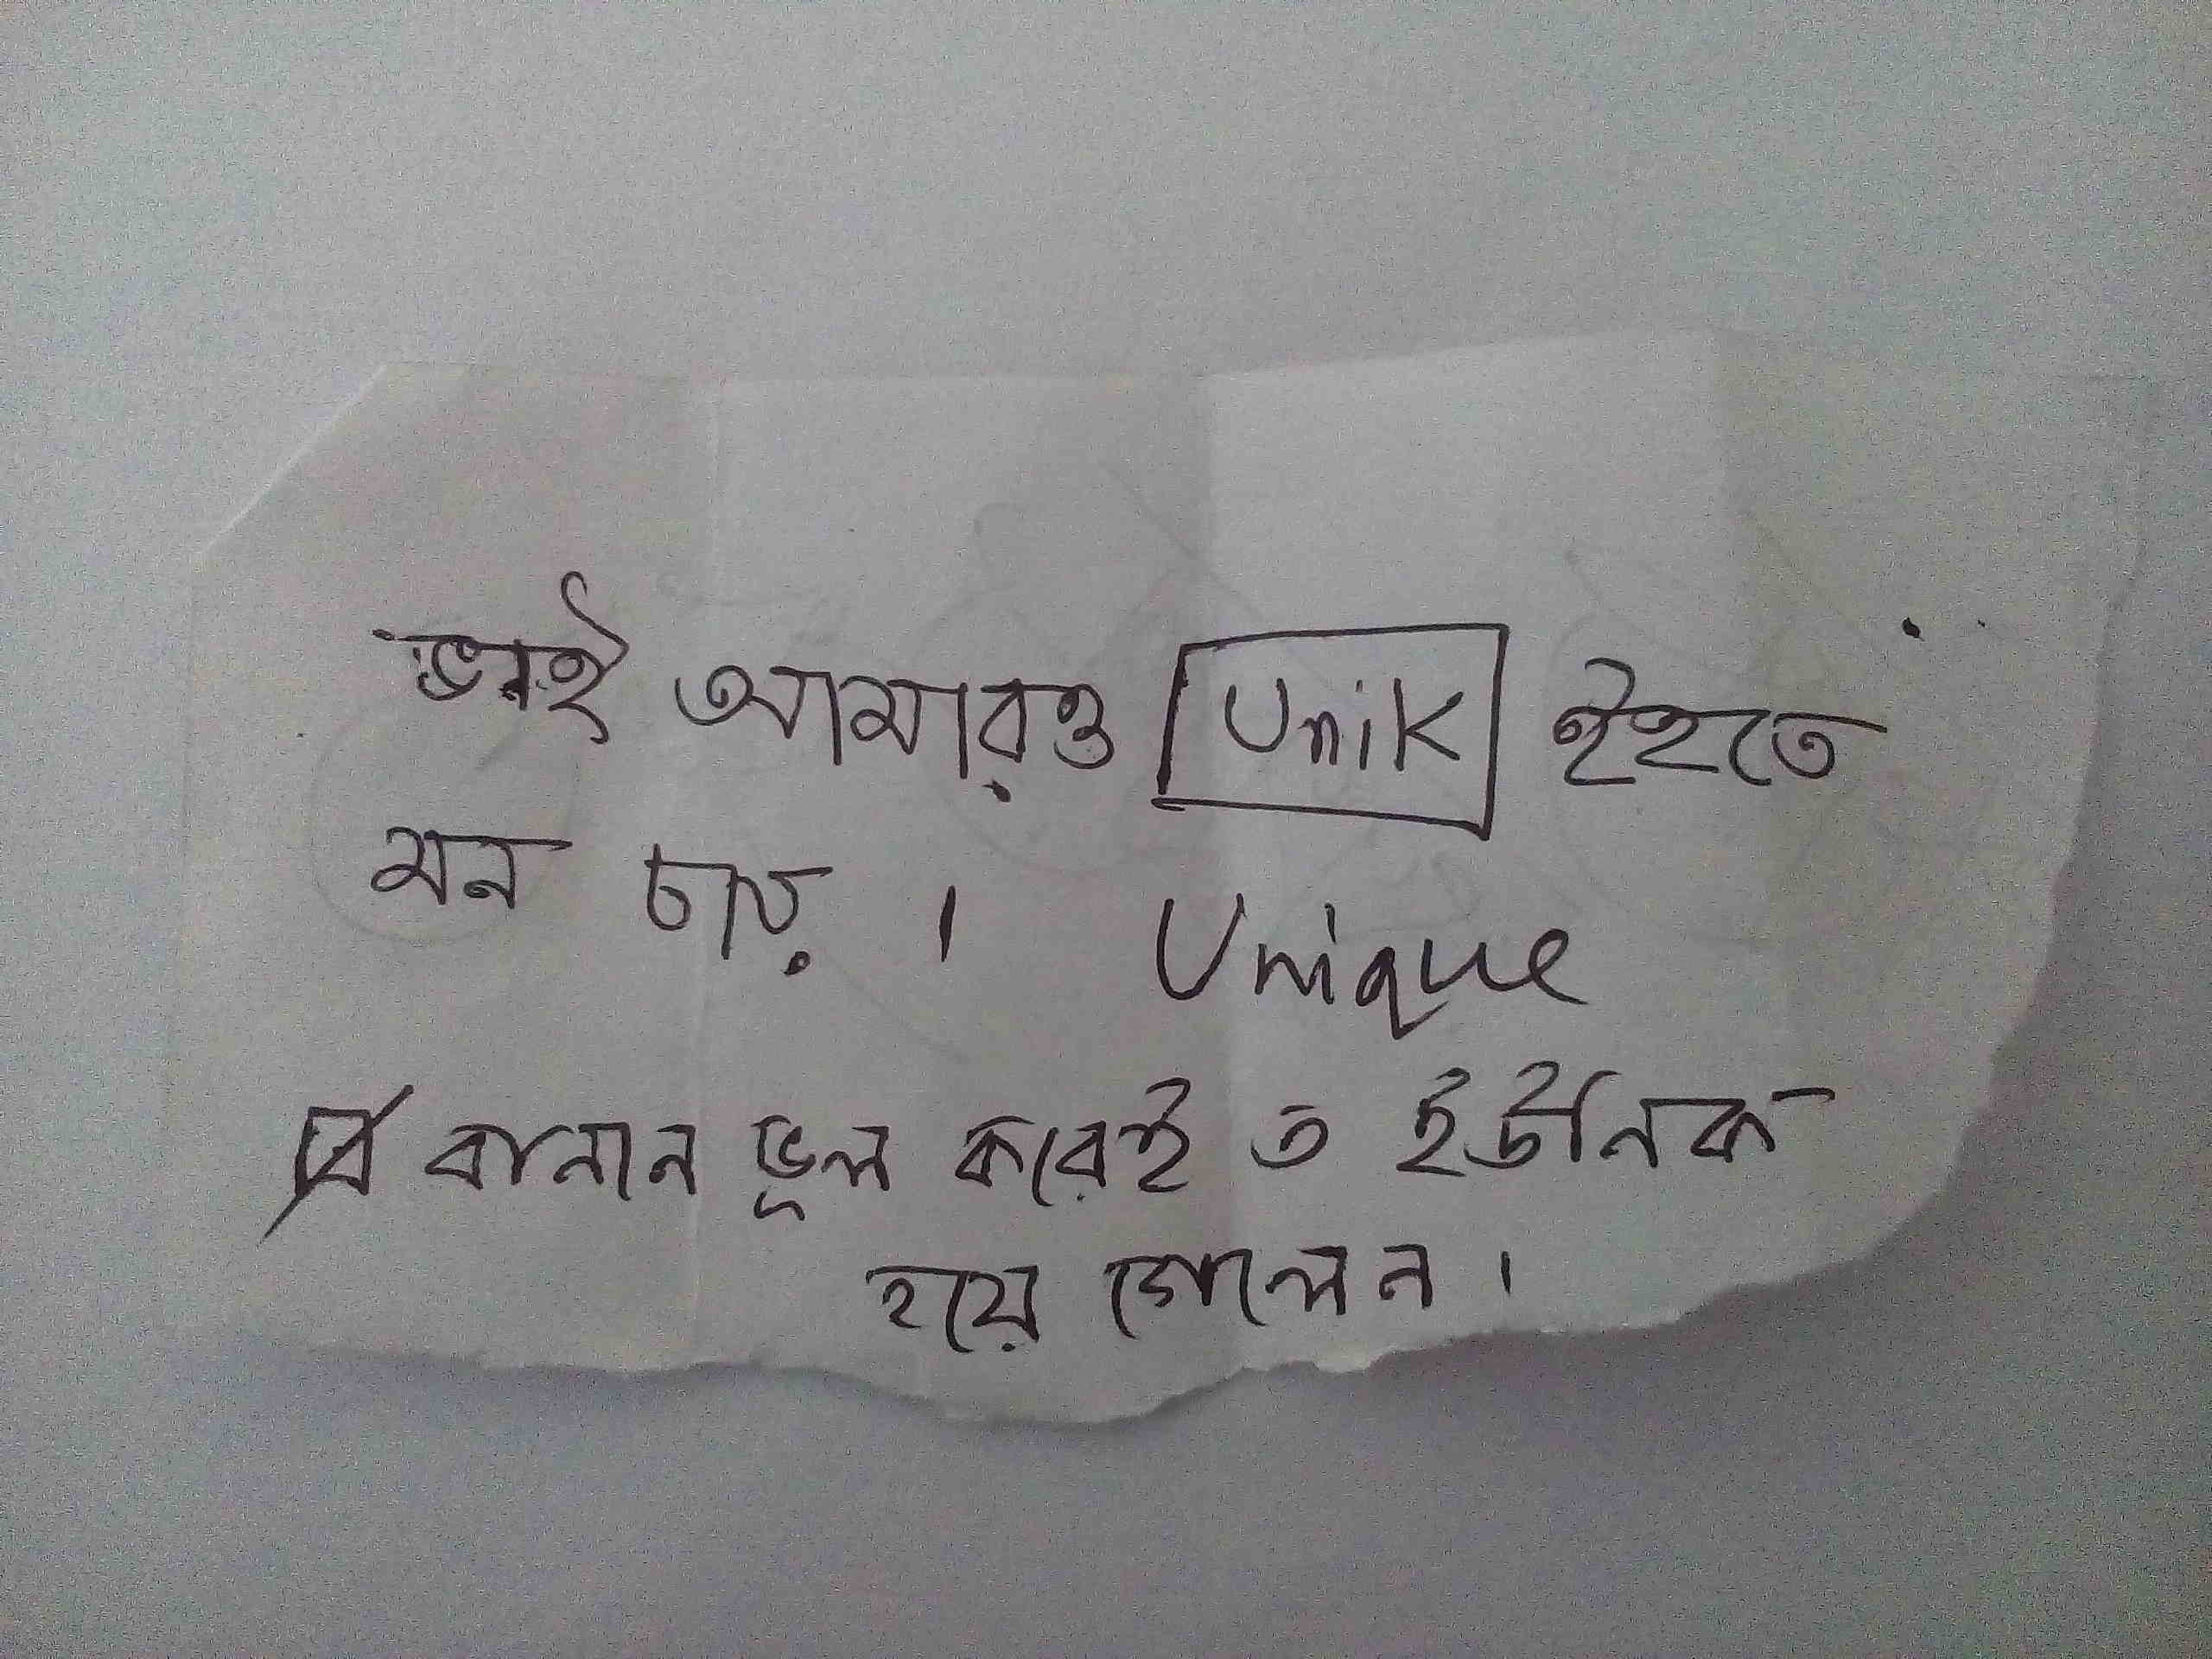 ভাই আমারও Unik হইতে
মন চায় । Unique
বানান ভুল করেই ত ইউনিক
হয়ে গেলেন ।